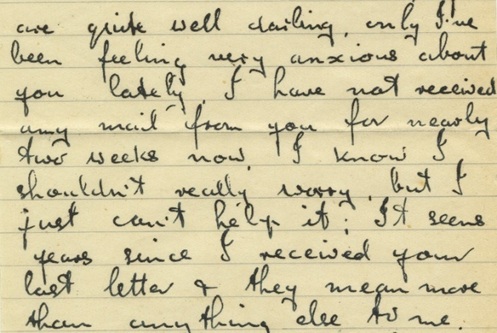 are quite well darling, only I've
been feeling very anxious about
you lately, I have not received
any mail from you for nearly
two weeks now, I know I
shouldn't really worry, but I
just can't help it; It seems
years since I received your
last letter & they mean more
than anything else to me.